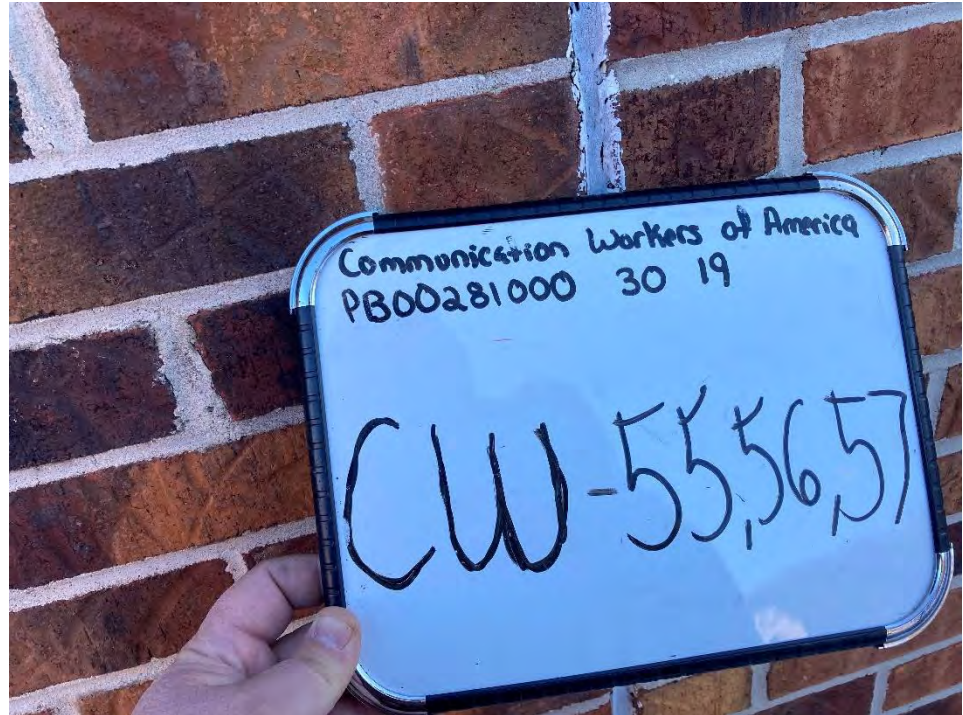 Communication Workers of America
PB00281000 30 19
CW-55,56,57